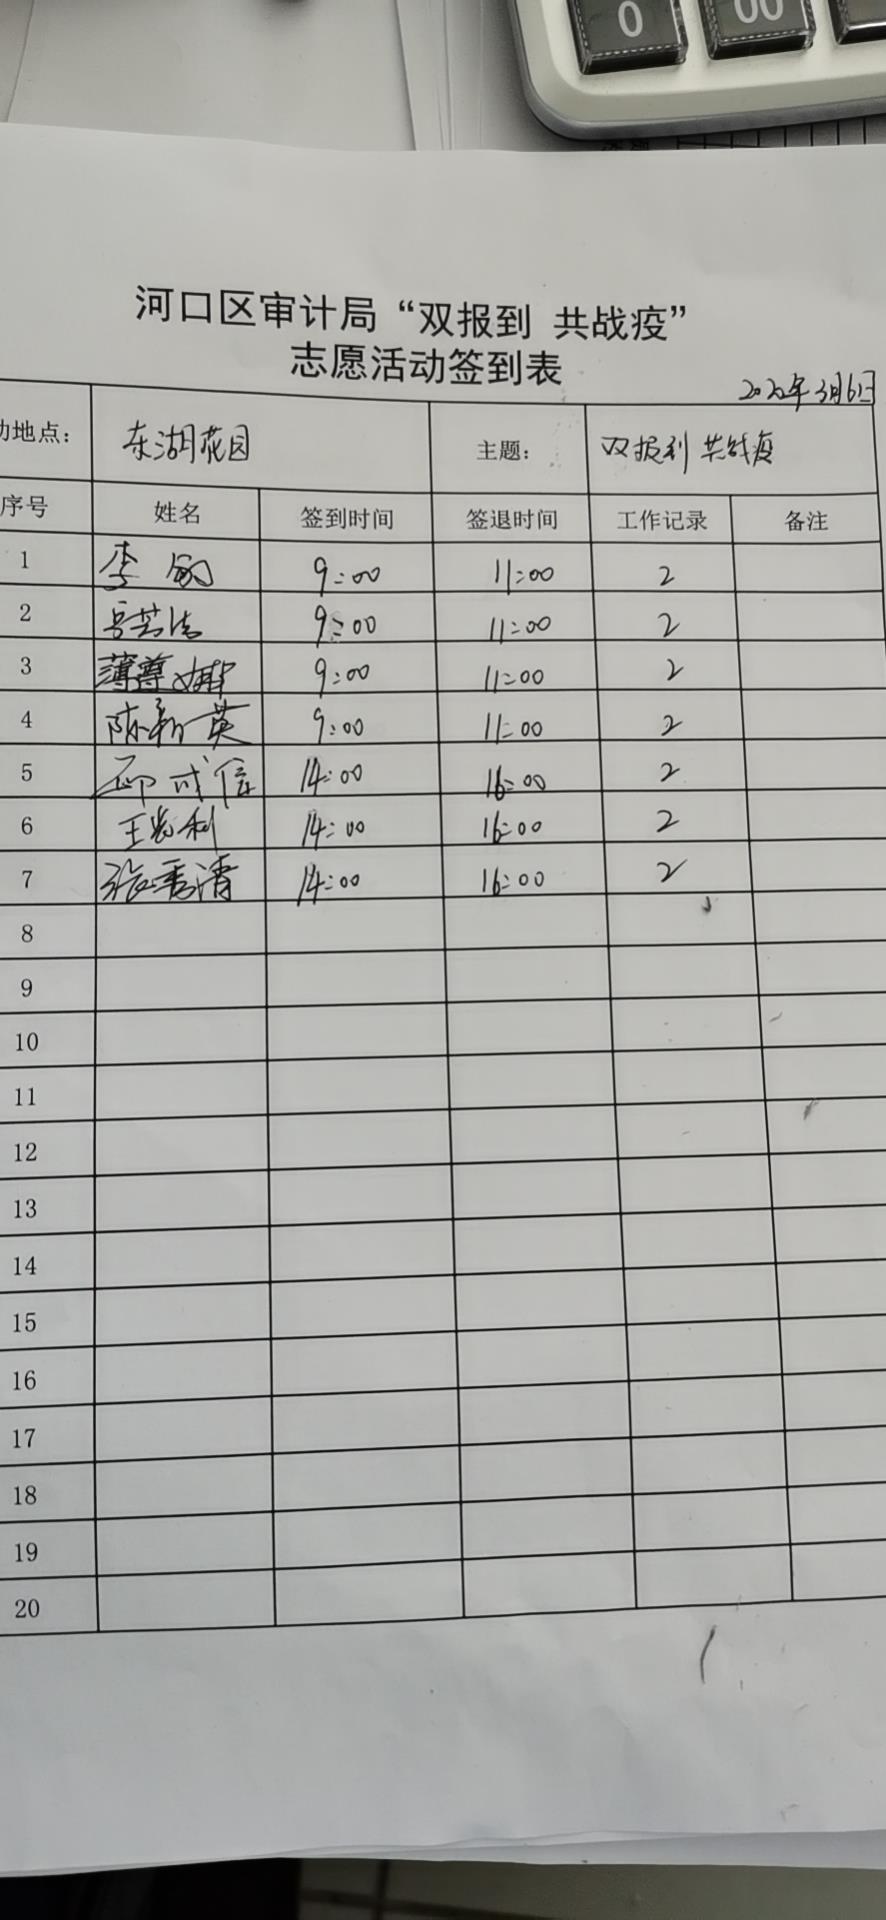 0 00
河口区审计局“双报到 共战疫”
志愿活动签到表
2022年3月6日
动地点： 东湖花园 主题： 双报到 共战疫
序号 姓名 签到时间 签退时间 工作记录 备注
1 李敏 9:00 11:00 2
2 9:00 11:00 2
3 薄尊娜 9:00 11:00 2
4 陈新英 9:00 11:00 2
5 成信 14:00 16:00 2
6 王 利 14:00 16:00 2
7 张秀清 14:00 16:00 2
8
9
10
11
12
13
14
15
16
17
18
19
20